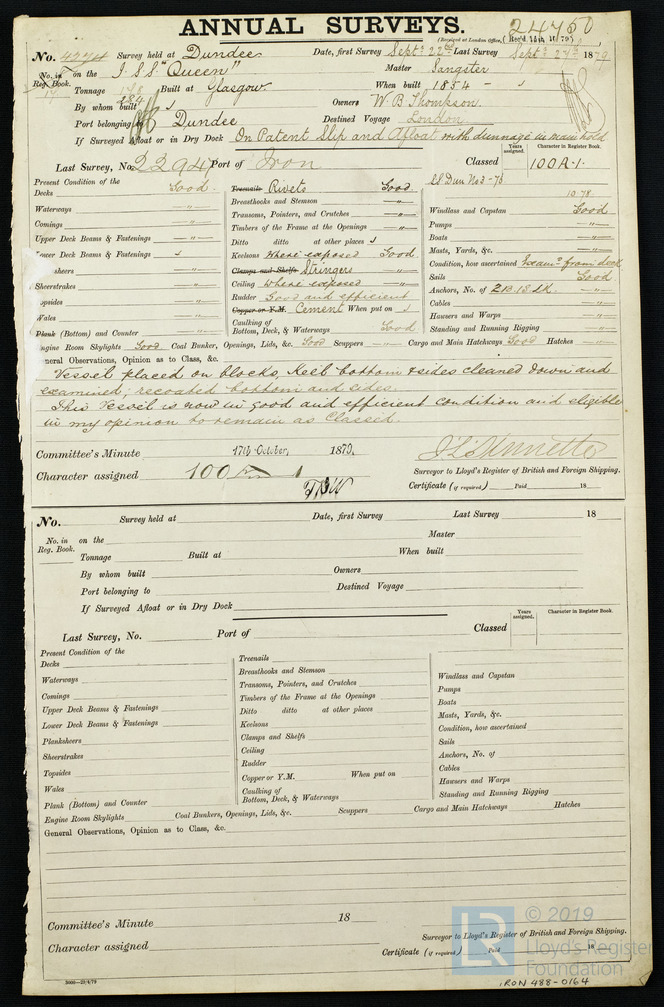 ANNUAL SURVEYS. 24750
(Received at London Office, Rec'd 14th 10 79)
No. 4274 Survey held at Dundee Date, first Survey Septr 22nd Last Survey Septr 27th 1879
No. in Reg. Book. on the I.S.S. "Queen" Master Sangster
Tonnage Built at Glasgow When built 1854
284
By whom built Owners W. B. Thompson
Port belonging to Dundee Destined Voyage London
If Surveyed Afloat or in Dry Dock On Patent Slip and Afloat with dunnage in main hold
Years assigned. Character in Register Book.
Last Survey, No. 2294 Port of Iron Classed 100A.1.
SS Dun No3-78
10.78
Present Condition of the
Decks Good.
Waterways "
Comings "
Upper Deck Beams & Fastenings "
Lower Deck Beams & Fastenings "
sheers "
Sheerstrakes "
opsides "
Wales "
Plank (Bottom) and Counter "
Treenails Rivets Good
Breasthooks and Stemson "
Transoms, Pointers, and Crutches "
Timbers of the Frame at the Openings "
Ditto ditto at other places
Keelsons Where exposed Good.
Clamps and Shelfs Stringers "
Ceiling where exposed "
Rudder Good and efficient
Copper or Y.M. Cement When put on
Caulking of Bottom, Deck, & Waterways Good
Windlass and Capstan Good
Pumps "
Boats "
Masts, Yards, &c. "
Condition, how ascertained Examd from deck
Sails Good
Anchors, No. of "
Cables "
Hawsers and Warps "
Standing and Running Rigging "
ngine Room Skylights Good Coal Bunker, Openings, Lids, &c. Good Scuppers " Cargo and Main Hatchways Good Hatches "
neral Observations, Opinion as to Class, &c.
Vessel placed on blocks, Keel bottom & sides cleaned down and
examined; recoated bottom and sides.
This Vessel is now in good and efficient condition and eligible
in my opinion to remain as Classed.
Committee's Minute 17th October, 1879.
Character assigned 100 A 1
Surveyor to Lloyd's Register of British and Foreign Shipping.
Certificate (if required) Paid 18
No. Survey held at Date, first Survey Last Survey 18
No. in Reg. Book. on the Master
Tonnage Built at When built
By whom built Owners
Port belonging to Destined Voyage
If Surveyed Afloat or in Dry Dock
Years assigned. Character in Register Book.
Last Survey, No. Port of Classed
Present Condition of the
Decks
Waterways
Comings
Upper Deck Beams & Fastenings
Lower Deck Beams & Fastenings
Planksheers
Sheerstrakes
Topsides
Wales
Plank (Bottom) and Counter
Treenails
Breasthooks and Stemson
Transoms, Pointers, and Crutches
Timbers of the Frame at the Openings
Ditto ditto at other places
Keelsons
Clamps and Shelfs
Ceiling
Rudder
Copper or Y.M. When put on
Caulking of Bottom, Deck, & Waterways
Windlass and Capstan
Pumps
Boats
Masts, Yards, &c.
Condition, how ascertained
Sails
Anchors, No. of
Cables
Hawsers and Warps
Standing and Running Rigging
Engine Room Skylights Coal Bunkers, Openings, Lids, &c. Scuppers Cargo and Main Hatchways Hatches
General Observations, Opinion as to Class, &c.
Committee's Minute 18
Character assigned
Surveyor to Lloyd's Register of British and Foreign Shipping.
Certificate (if required) Paid 18
LR © 2019
Lloyd's Register
Foundation
IRON 488-0164